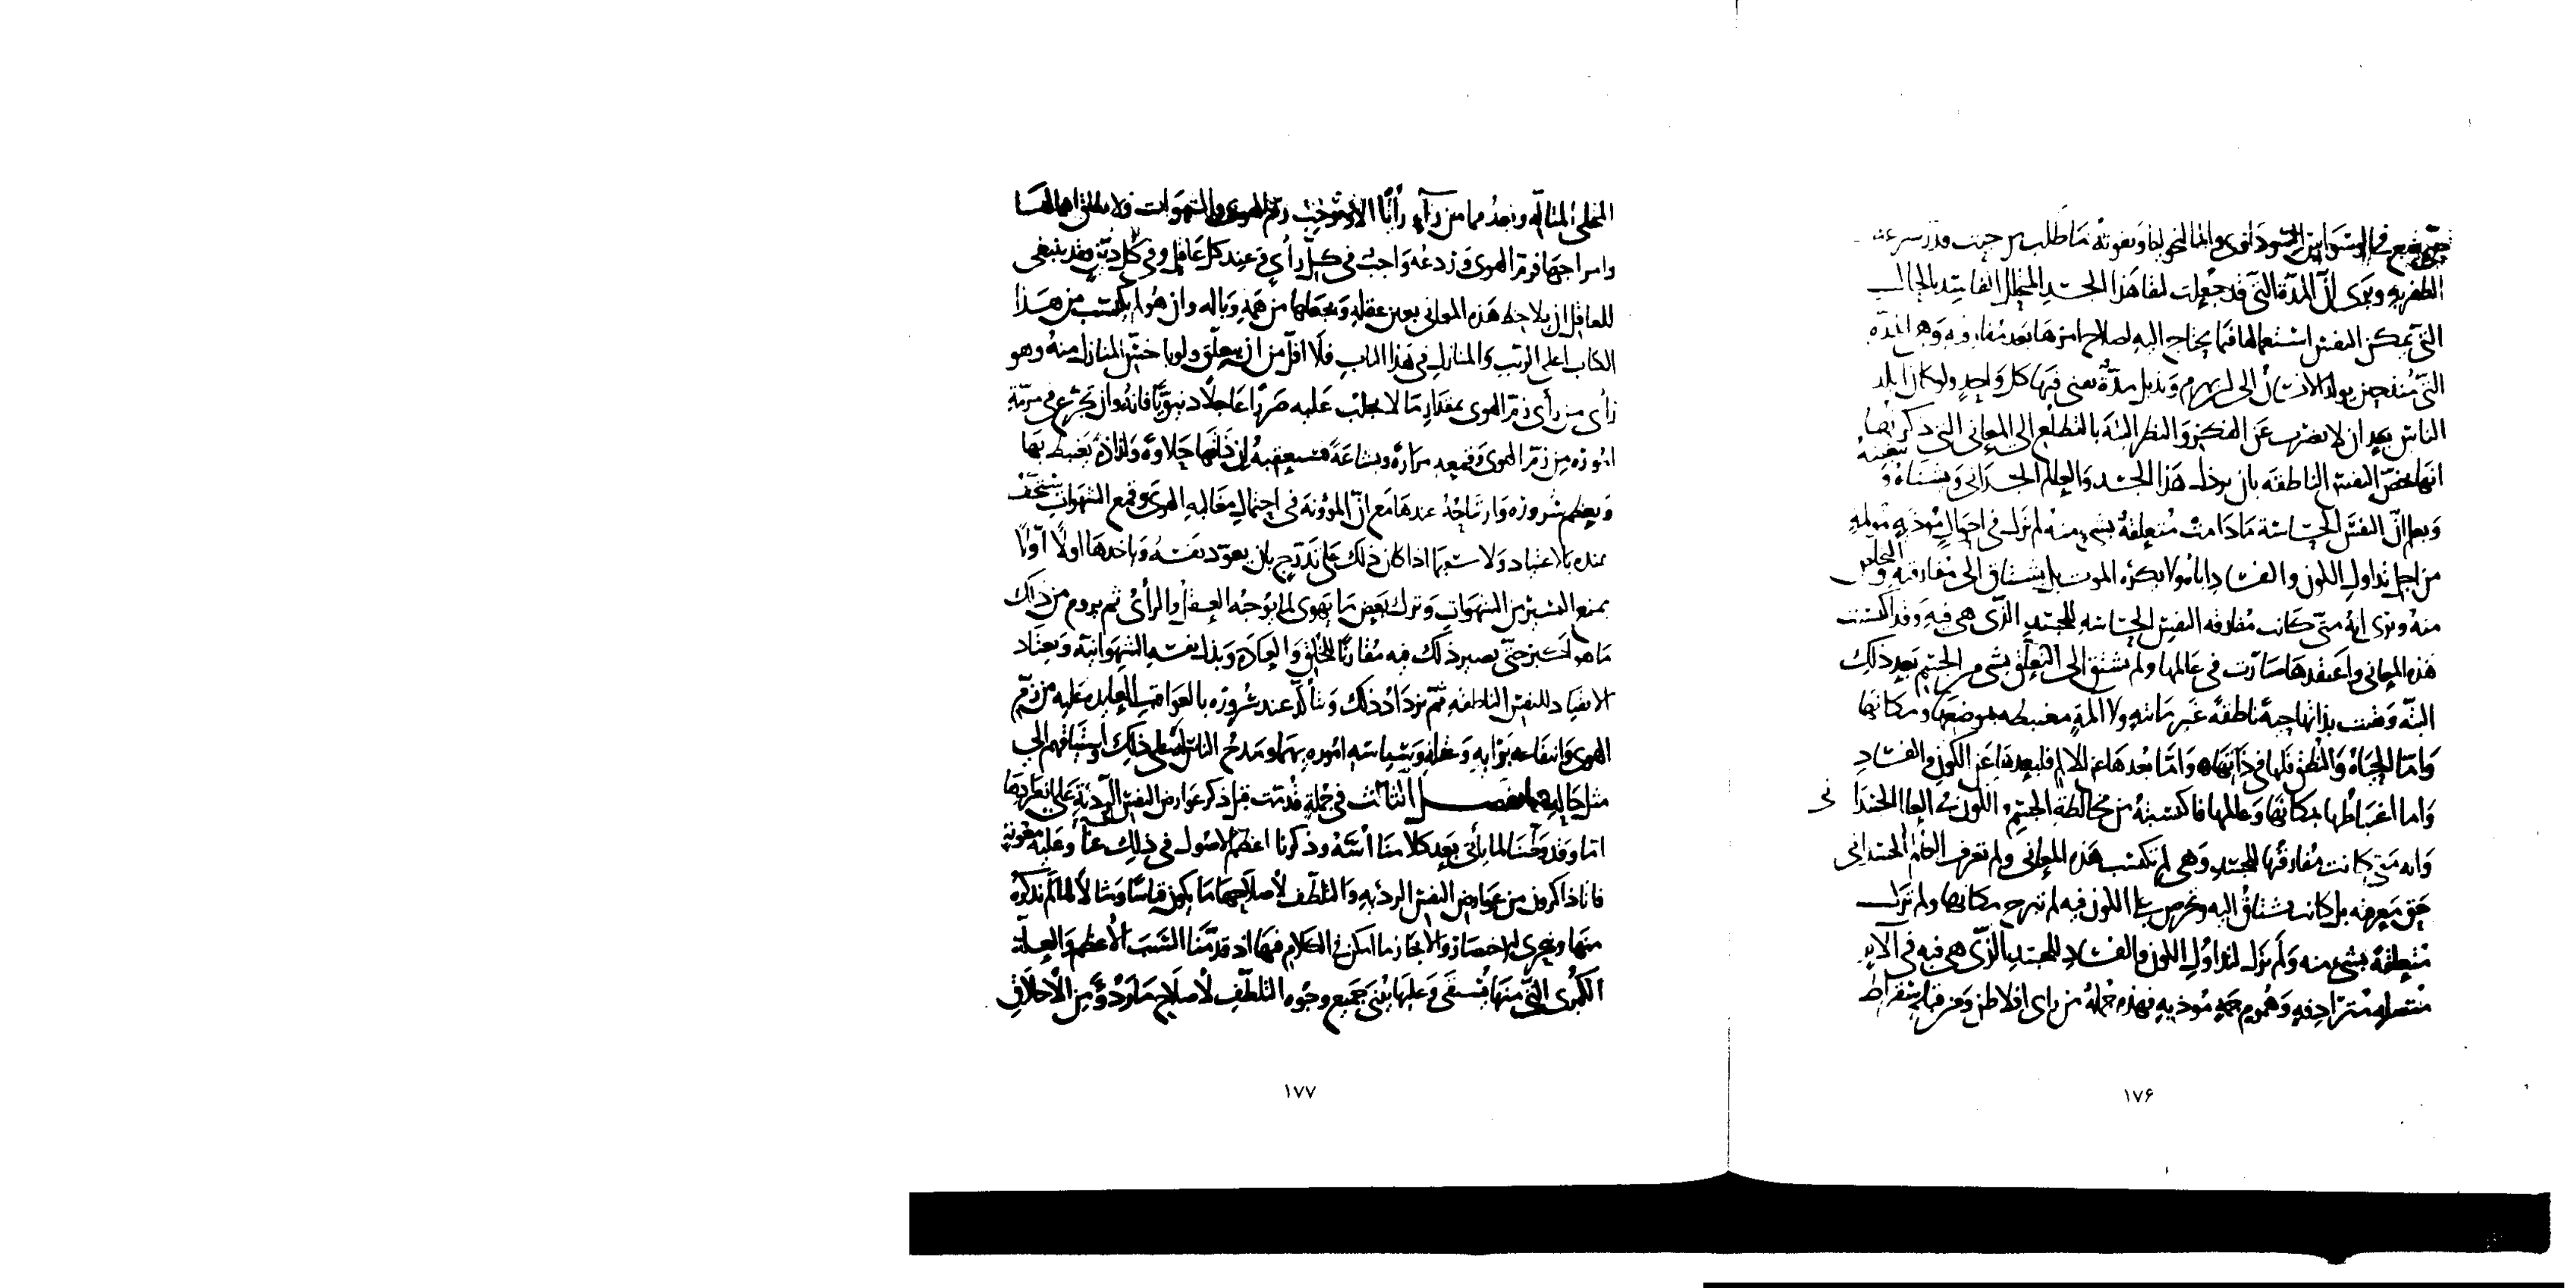 حتى يقع في الوسواس السوداوي والمالنخوليا ويفوته ما طلب من حيث قدر سرعة
الظفر به ويرى ان المدة التي قد جعلت لبقا هذا الجسد المتحلل الفاسد بالحال
التي يمكن النفس استعمالها فيما يحتاج اليه لصلاح امرها بعد مفارقته وهي المدة
التي منذ حين يولد الانسان الى ان يهرم ويذبل مدة يفي فيها كل واحد ولو كان ابلد
الناس بعد ان لا يضرب عن الفكر والنظر البتة بالتطلع الى المعاني التي ذكرنا
انها تخص النفس الناطقة بان يرذل هذا الجسد والعالم الجسداني ويشناه و يبغضه
ويعلم ان النفس الحساسة ما دامت متعلقة بشيء منه لم تزل في احوال موذية مولمة
من اجل تداول الكون والفساد اياه ولا يكره الموت بل يشتاق الى مفارقته و التخلص
منه ونرى انه متى كانت مفارقة النفس الحساسة للجسد الذي هي فيه وقد اكتسبت
هذه المعاني واعتقدتها صارت في عالمها ولم تشتق الى التعلق بشي من الجسم بعد ذلك
البتة وبقيت بذاتها حية ناطقة غير مائتة ولا المة مغتبطة بموضعها ومكانها
واما الحياة والنطق فلها في ذاتها واما بعدها عن الالم فلبعدها عن الكون والفساد
واما اغتباطها بمكانها وعالمها فاكتسبته من مخالطة الجسم و الكون في العالم الجسدا نى
وانه متى كانت مفارقتها للجسد وهي لم تكتسب هذه المعاني ولم تعرف العالم الجسداني
حق معرفته بل كانت تشتاق اليه وتحرص على الكون فيه لم تبرح مكانها ولم تزل
متعلقة بشيء منه ولم تزل لتداول الكون والفساد للجسد الذي هي فيه في الام
متصلة مترادفة وهموم جمة موذية فهذه جملة من راى افلاطن ومن قبله سقراط
المتخلي المتاله وبعد فما من رأي رأيا الا ويوجب زم الهوى والشهوات ولا يطلق اهمالهما
وامراجهما فزم الهوى وردعه واجب في كل رأي وعند كل عاقل وفي كل دين وقد ينبغي
للعاقل ان يلاحظ هذه المعاني بعين عقله ويجعلها من همه وباله وان هو لم يكتسب من هذا
الكتاب اعلى الرتب والمنازل في هذا الباب فلا اقل من ان يتعلق ولو باخس المنازل منه وهو
رأي من رأى زم الهوى بمقدار ما لا يجلب عليه ضررا عاجلا دنيويا فانه وان تجرع في
اموره من زم الهوى وقمعه مرارة وبشاعة فستعقبه حلاوة ولذاذة يغتبط بها
ويعظم سروره وارتياحه عندها مع ان المؤونة في احتمال مغالبة الهوى وقمع الشهوات ستخف
عنده بالاعتياد ولا سيما اذا كان ذلك على تدريج بان يعود نفسه وياخذها اولا اولا
بمنع اليسير من الشهوات وترك بعض ما يهوى لما يوجبه العقل والرأي ثم يروم من ذلك
ما هو اكثر حتى يصير ذلك فيه مقارنا للخلق والعادة وتذل نفسه الشهوانية وتعتاد
الانقياد للنفس الناطقة ثم يزداد ذلك ويتأكد عند سروره بالعواقب العايدة عليه من زم
الهوى وانتفاعه برايه وعقله وسياسة اموره بهما ومدح الناس له على ذلك واشتياقهم الى
مثل حاله الفصل الثالث في جملة قدمت قبل ذكر عوارض النفس الردئية على انفرادها
اما وقد وطينا لما يأتي بعد كلامنا اسه وذكرنا اعظم الاصول في ذلك غنا وعليه معونة
فانا ذاكرون من عوارض النفس الردئية والتلطف لأصلاحها ما يكون قياسا ومثالا لما لم نذكره
منها ونتحرى الاختصار والايجاز ما امكن في الكلام فيها اذ قدمنا السبب الأعظم والعلة
الكبرى التي منها نستقي وعليها نبني جميع وجوه التلطف لأصلاح ما ردؤ من الأخلاق
١٧٧
١٧۶